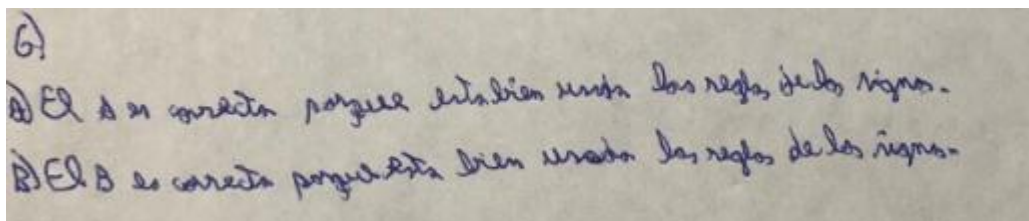 6)
A) El A es correcta porque esta bien usada las reglas de los signos.
B) El B es correcta porque esta bien usada las reglas de los signos.